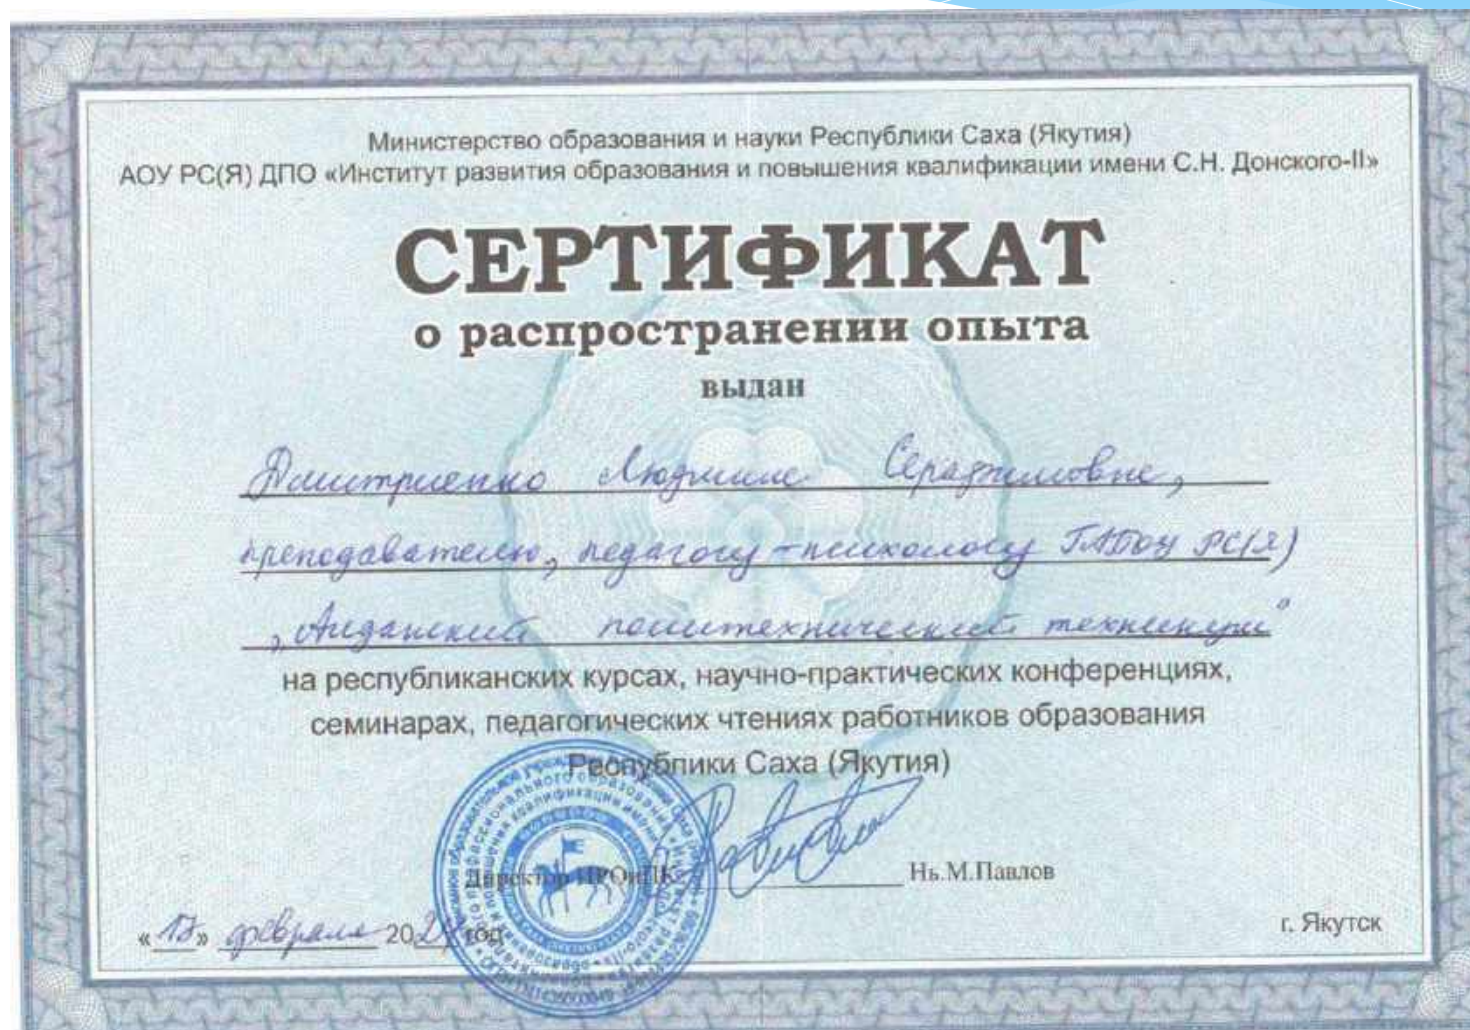 Министерство образования и науки Республики Саха (Якутия)
АОУ РС(Я) ДПО «Институт развития образования и повышения квалификации имени С.Н. Донского-II»
СЕРТИФИКАТ
о распространении опыта
выдан
Дмитриенко Людмиле Серафимовне,
преподавателю, педагогу-психологу ГАПОУ РС(Я)
„Алданский политехнический техникум"
на республиканских курсах, научно-практических конференциях,
семинарах, педагогических чтениях работников образования
Республики Саха (Якутия)
Директор ИРОиПК Нь.М.Павлов
« » февраля 202 год
г. Якутск